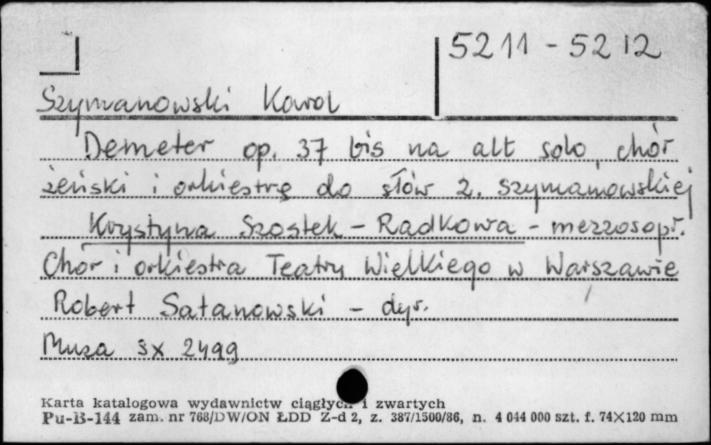 5211 - 5212
Szymanowski Karol
Demeter op. 37 bis na alt solo, chór
żeński i orkiestrę do słów Z. Szymanowskiej
Krystyna Szostek - Radkowa - mezzosopr.
Chór i orkiestra Teatru Wielkiego w Warszawie
Robert Satanowski - dyr.
Muza SX 2499
Karta katalogowa wydawnictw ciągłych i zwartych
Pu-B-144 zam. nr 768/DW/ON ŁDD Z-d 2, z. 387/1500/86, n. 4 044 000 szt. f. 74×120 mm